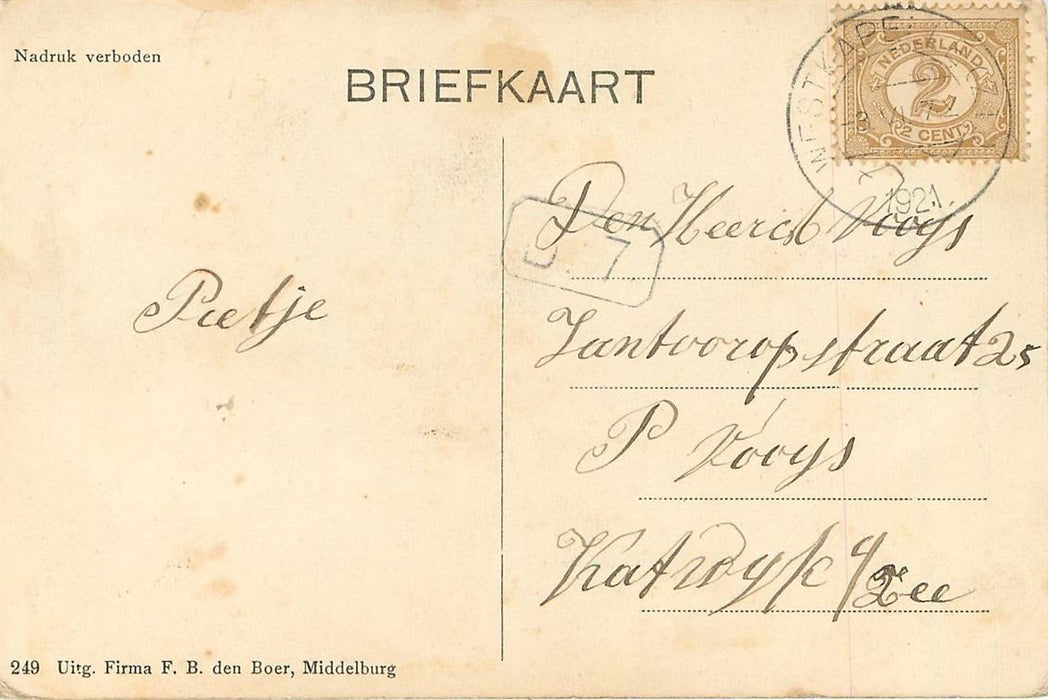 Nadruk verboden
BRIEFKAART
NEDERLAND
2
2 CENT
WESTKAPE
1921
7
Den Heer d Vooys
Pietje
Zantvoorpstraat 25
P Vooys
Katwyk a/
Zee
249 Uitg. Firma F. B. den Boer, Middelburg